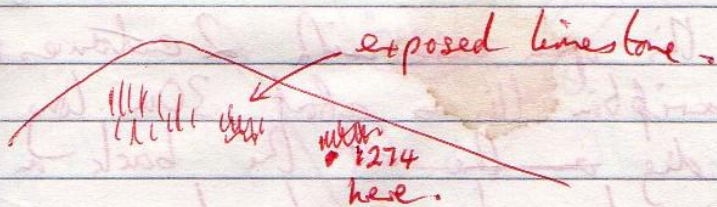 exposed limestone.
1274
here.